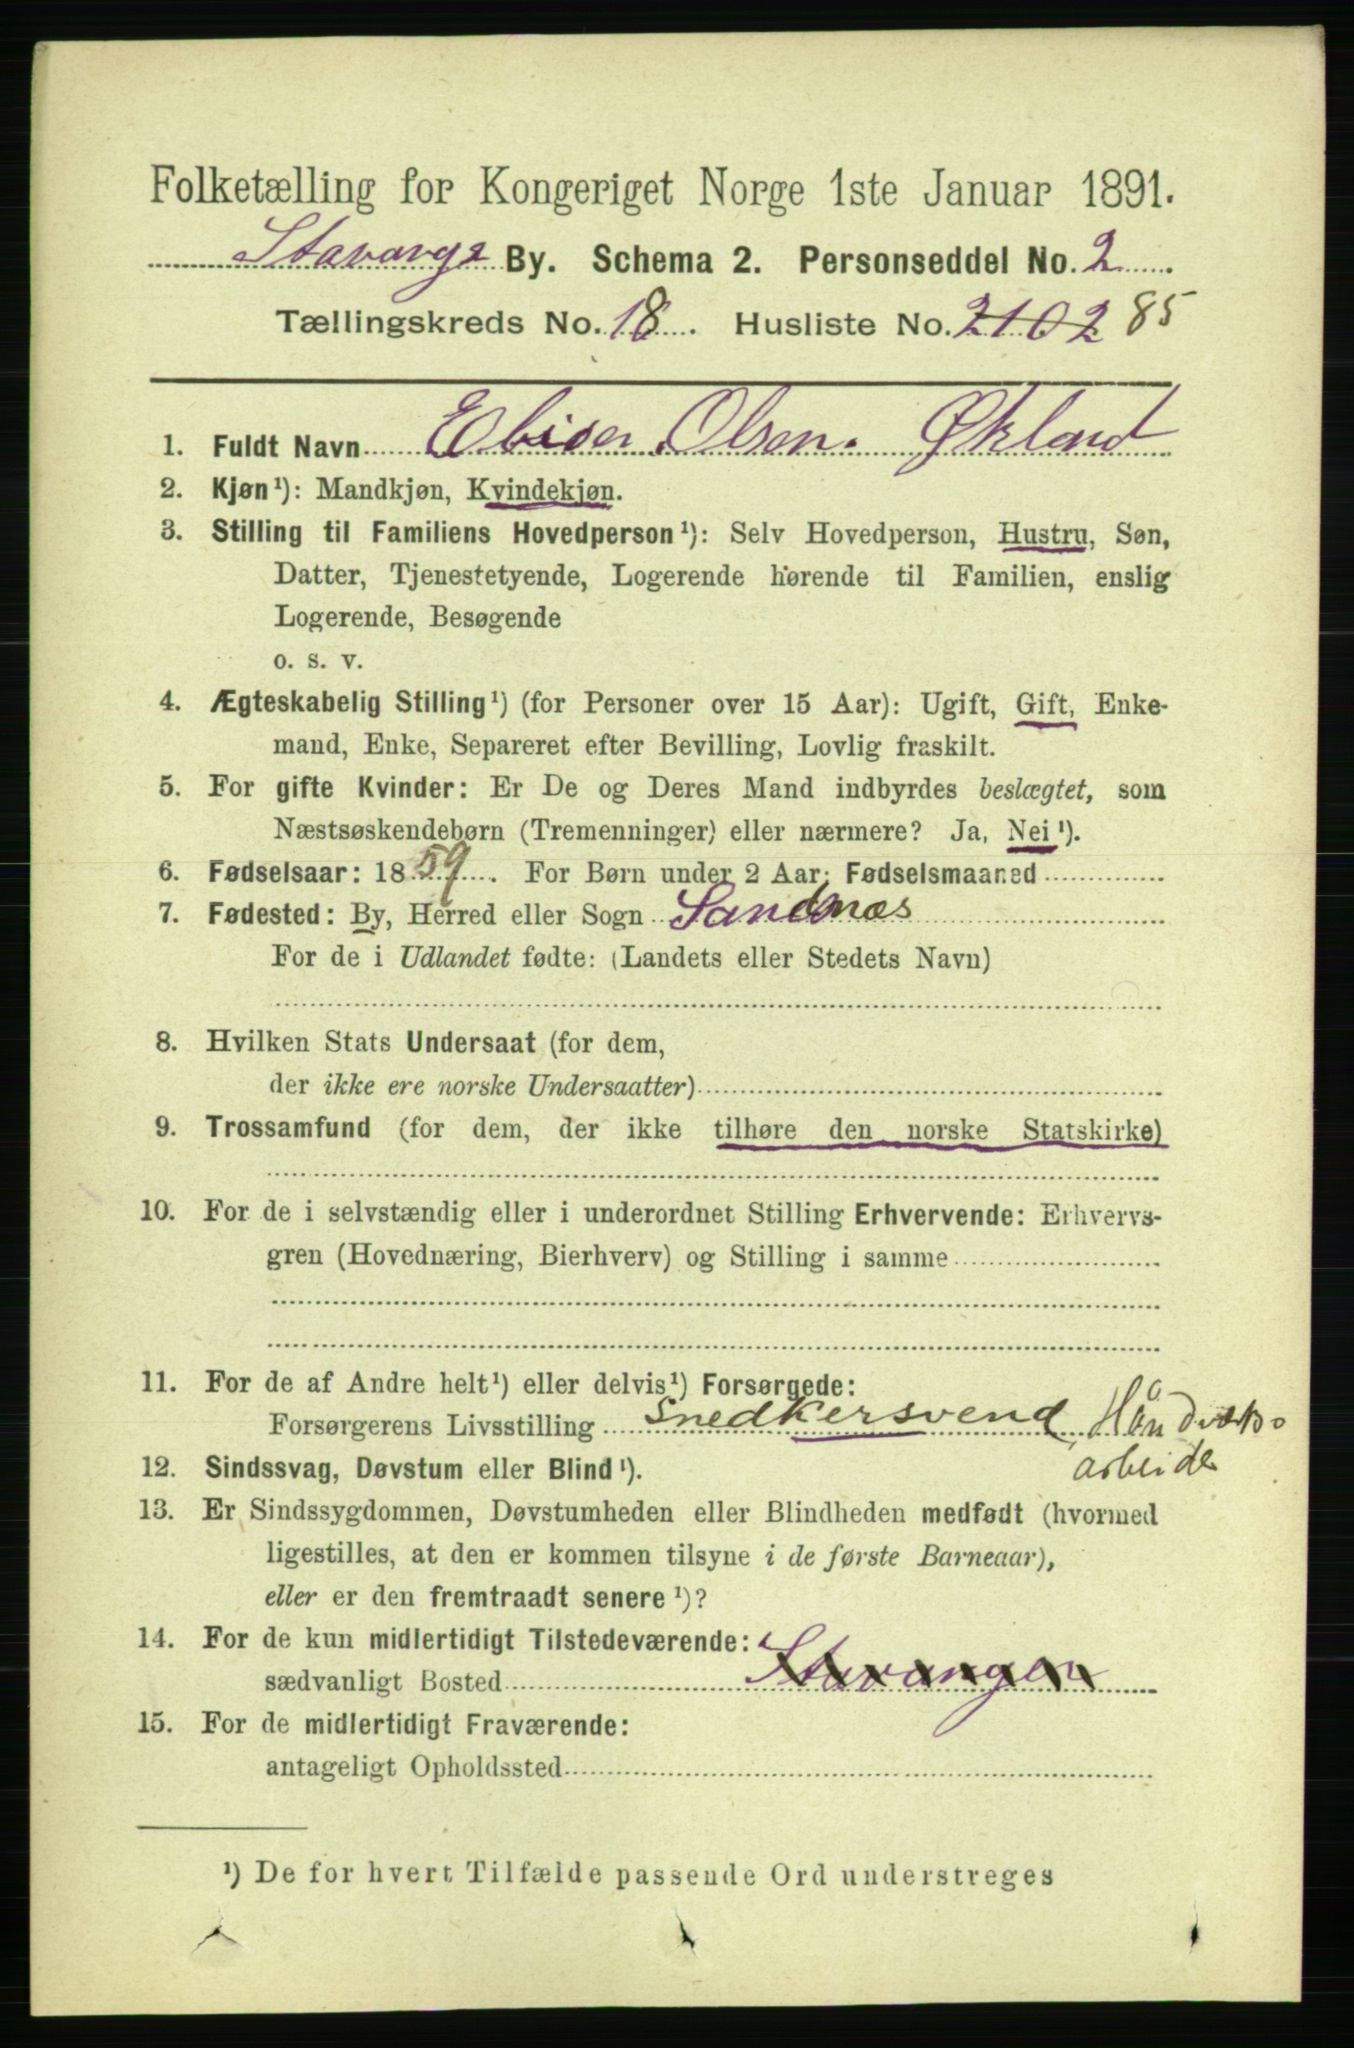 Folketælling for Kongeriget Norge 1ste Januar 1891.
By. Schema 2. Personseddel No. 2
Tællingskreds No. 18. Husliste No. 2102 85
1. Fuldt Navn Olsen. Økland
2. Kjøn¹): Mandkjøn, Kvindekjøn.
3. Stilling til Familiens Hovedperson¹): Selv Hovedperson, Hustru, Søn,
Datter, Tjenestetyende, Logerende hørende til Familien, enslig
Logerende, Besøgende
o. s. v.
4. Ægteskabelig Stilling¹) (for Personer over 15 Aar): Ugift, Gift, Enke-
mand, Enke, Separeret efter Bevilling, Lovlig fraskilt.
5. For gifte Kvinder: Er De og Deres Mand indbyrdes beslægtet, som
Næstsøskendebørn (Tremenninger) eller nærmere? Ja, Nei¹).
6. Fødselsaar: 1859. For Børn under 2 Aar: Fødselsmaaned
7. Fødested: By, Herred eller Sogn Sandnæs
For de i Udlandet fødte: (Landets eller Stedets Navn)
8. Hvilken Stats Undersaat (for dem,
der ikke ere norske Undersaatter)
9. Trossamfund (for dem, der ikke tilhøre den norske Statskirke)
10. For de i selvstændig eller i underordnet Stilling Erhvervende: Erhvervs-
gren (Hovednæring, Bierhverv) og Stilling i samme
11. For de af Andre helt¹) eller delvis¹) Forsørgede:
Forsørgerens Livsstilling Snedkersvend
12. Sindssvag, Døvstum eller Blind¹).
13. Er Sindssygdommen, Døvstumheden eller Blindheden medfødt (hvormed
ligestilles, at den er kommen tilsyne i de første Barneaar),
eller er den fremtraadt senere¹)?
14. For de kun midlertidigt Tilstedeværende:
sædvanligt Bosted Stavanger
15. For de midlertidigt Fraværende:
antageligt Opholdssted
¹) De for hvert Tilfælde passende Ord understreges